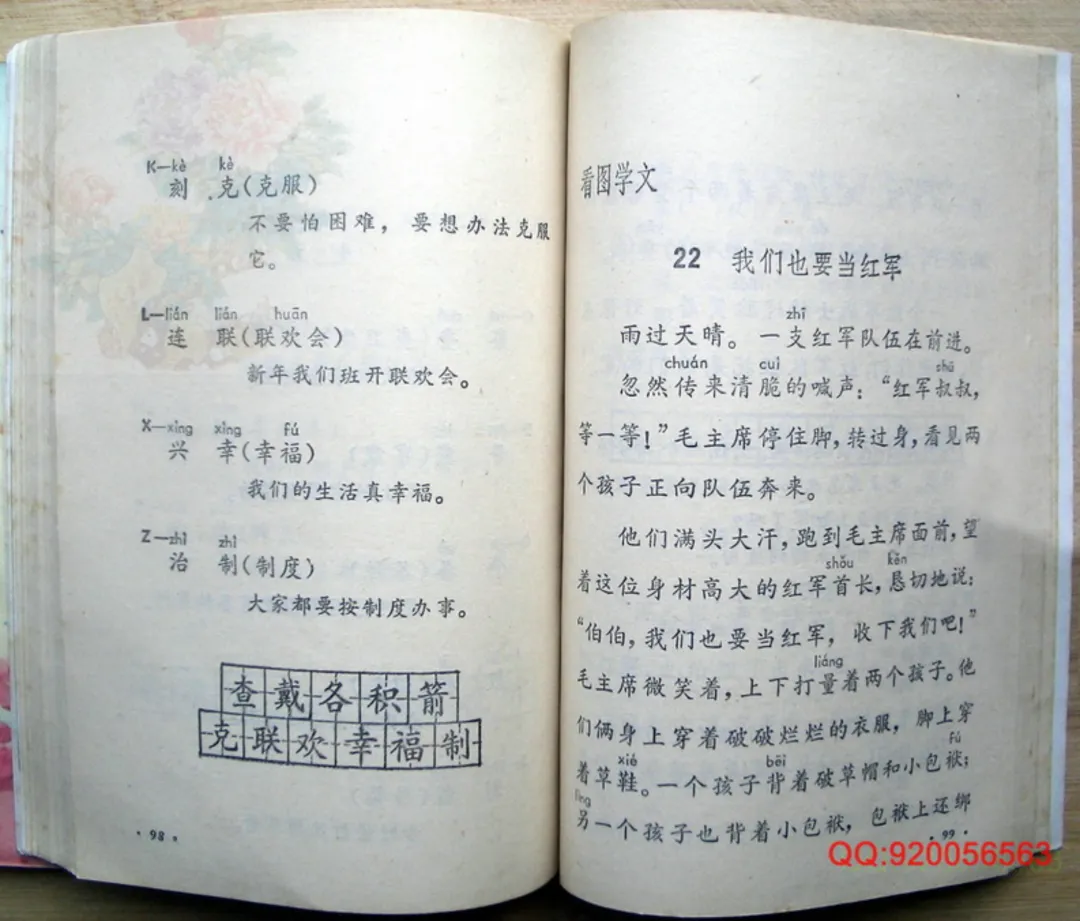 K—kè kè
刻 克(克服)
不要怕困难，要想办法克服
它。
L—lián lián huān
连 联(联欢会)
新年我们班开联欢会。
X—xìng xìng fú
兴 幸(幸福)
我们的生活真幸福。
Z—zhì zhì
治 制(制度)
大家都要按制度办事。
查戴各积箭
克联欢幸福制
·98·
看图学文
22 我们也要当红军
zhī
雨过天晴。一支红军队伍在前进。
chuán cuì shū
忽然传来清脆的喊声：“红军叔叔，
等一等！”毛主席停住脚，转过身，看见两
个孩子正向队伍奔来。
他们满头大汗，跑到毛主席面前，望
shǒu kěn
着这位身材高大的红军首长，恳切地说：
“伯伯，我们也要当红军，收下我们吧！”
liáng
毛主席微笑着，上下打量着两个孩子。他
们俩身上穿着破破烂烂的衣服，脚上穿
xié bēi fú
着草鞋。一个孩子背着破草帽和小包袱；
lìng
另一个孩子也背着小包袱，包袱上还绑
·99·
QQ:920056563